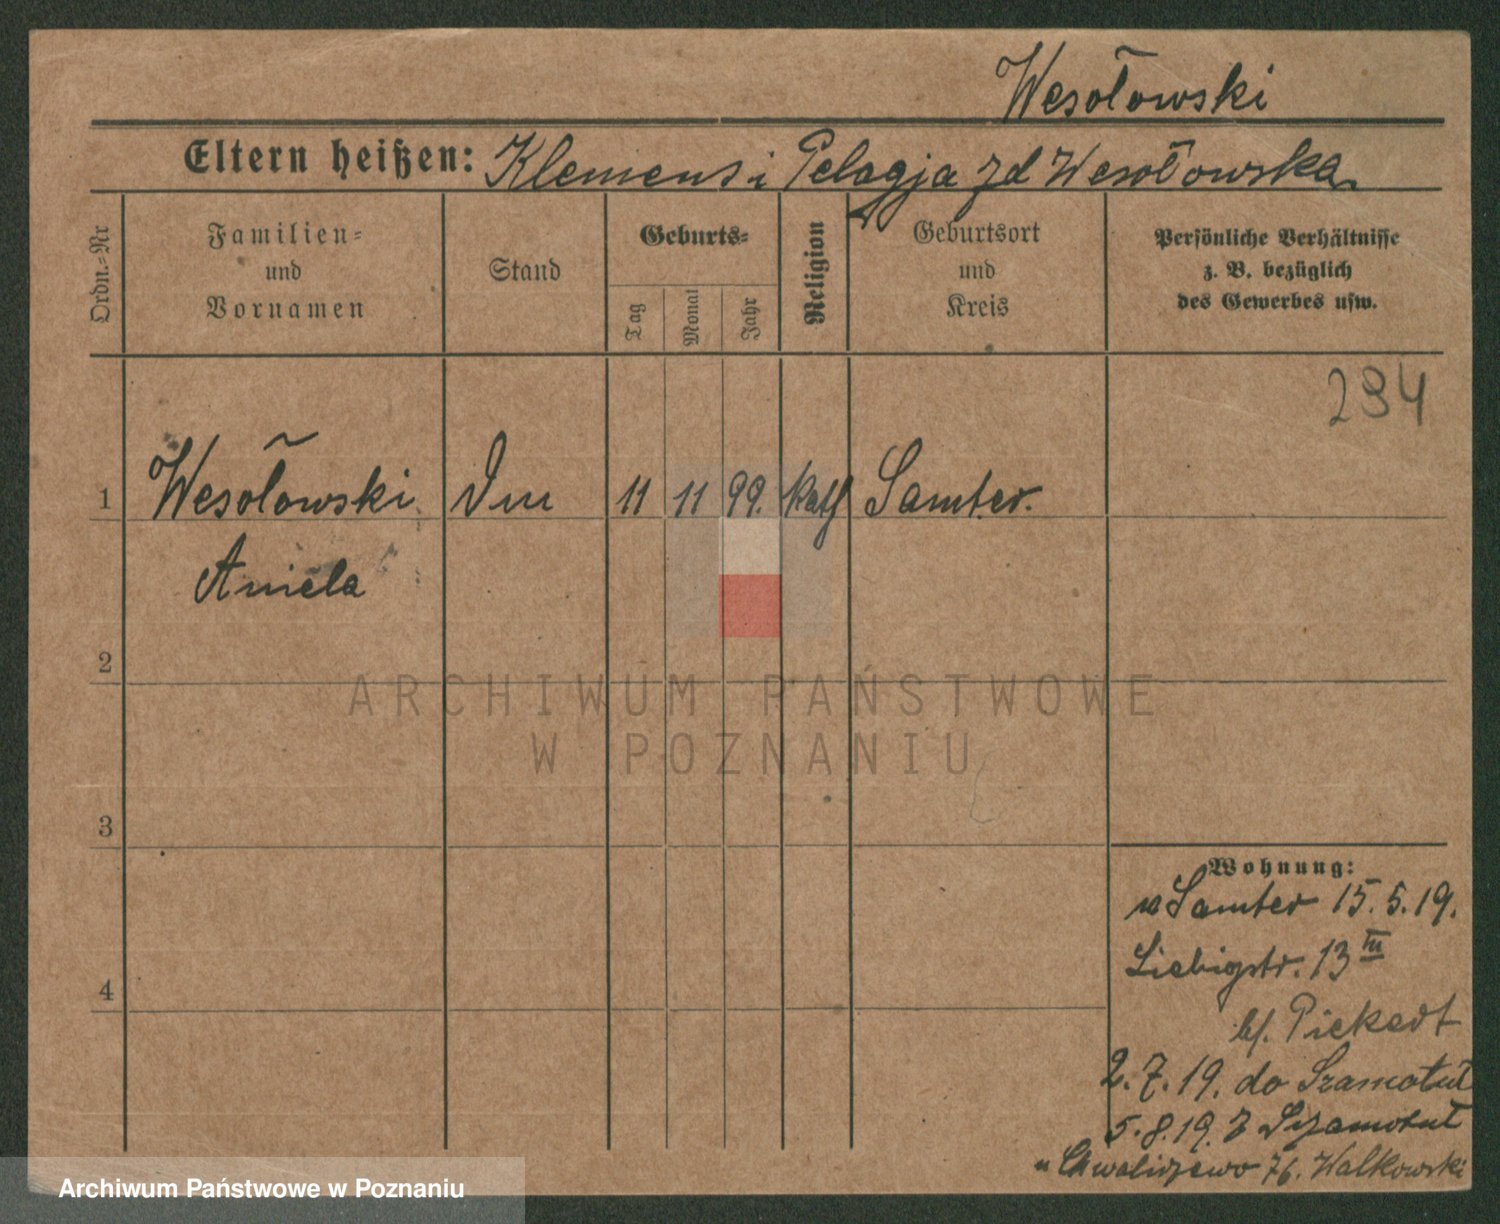 Wesołowski
Eltern heißen: Klemens i Pelagja zd Wesołowska
Ordn.-Nr
Familien-
und
Vornamen
Stand
Geburts-
Tag
Monat
Jahr
Religion
Geburtsort
und
Kreis
Persönliche Verhältnisse
z. B. bezüglich
des Gewerbes usw.
294
1 Wesołowski 11 11 99. kath Samter.
Aniela
2
ARCHIWUM PAŃSTWOWE
W POZNANIU
3
Wohnung:
Samter 15.5.19.
Liebigstr. 13 III
b/. Piekert
4
2.7.19. do Szamotuł
5.8.19. z Szamotuł
Chwaliszewo 76. Walkowski
Archiwum Państwowe w Poznaniu